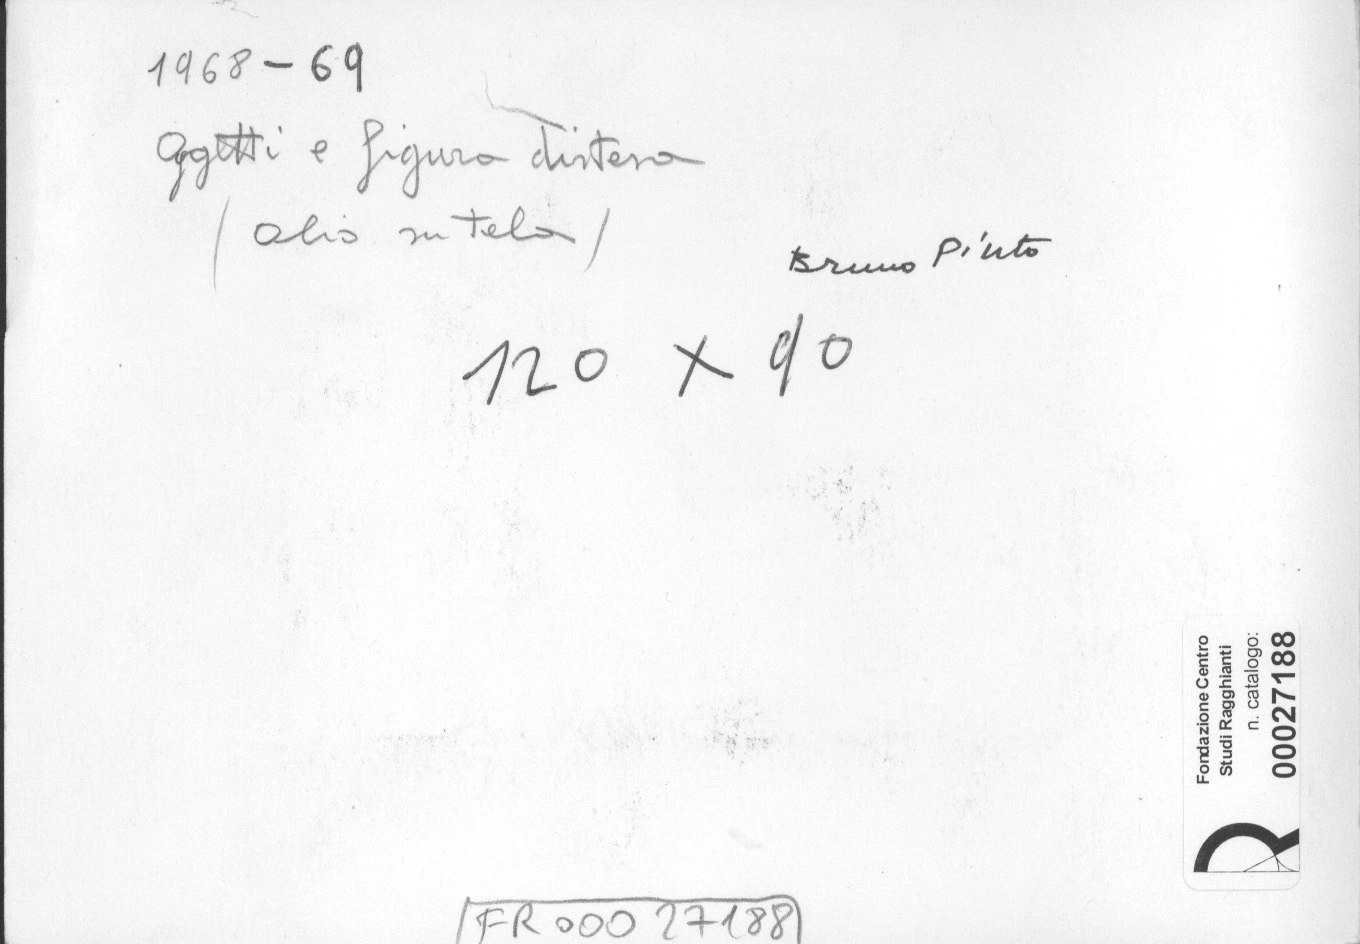 1968-69
Oggetti e figura distesa
(olio su tela)
Bruno Pinto
120 x 90
Fondazione Centro
Studi Ragghianti
n. catalogo:
00027188
FR 000 27188